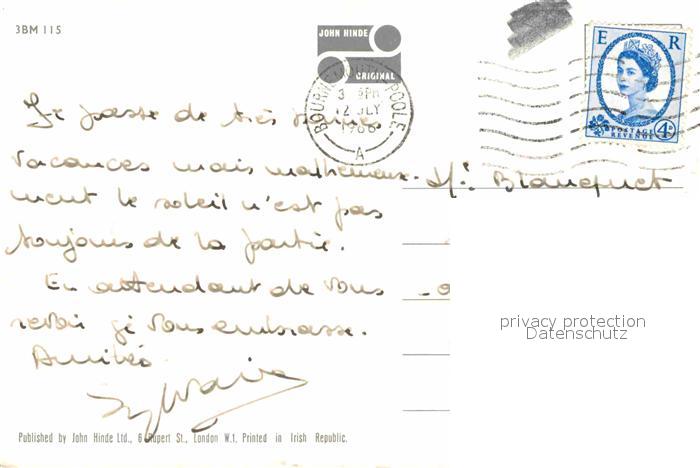 3BM 115
JOHN HINDE
ORIGINAL
BOURNEMOUTH-POOLE
3 PM
12 JLY
1966
A
E R
POSTAGE
REVENUE
4D
Je passe de très bonnes
vacances mais malheureuse-
ment le soleil n'est pas
toujours de la partie.
En attendant de vous
revoir je vous embrasse.
Amitiés
Sylvaine
Mr Blanquet
privacy protection
Datenschutz
Published by John Hinde Ltd., 6 Rupert St., London W.1. Printed in Irish Republic.